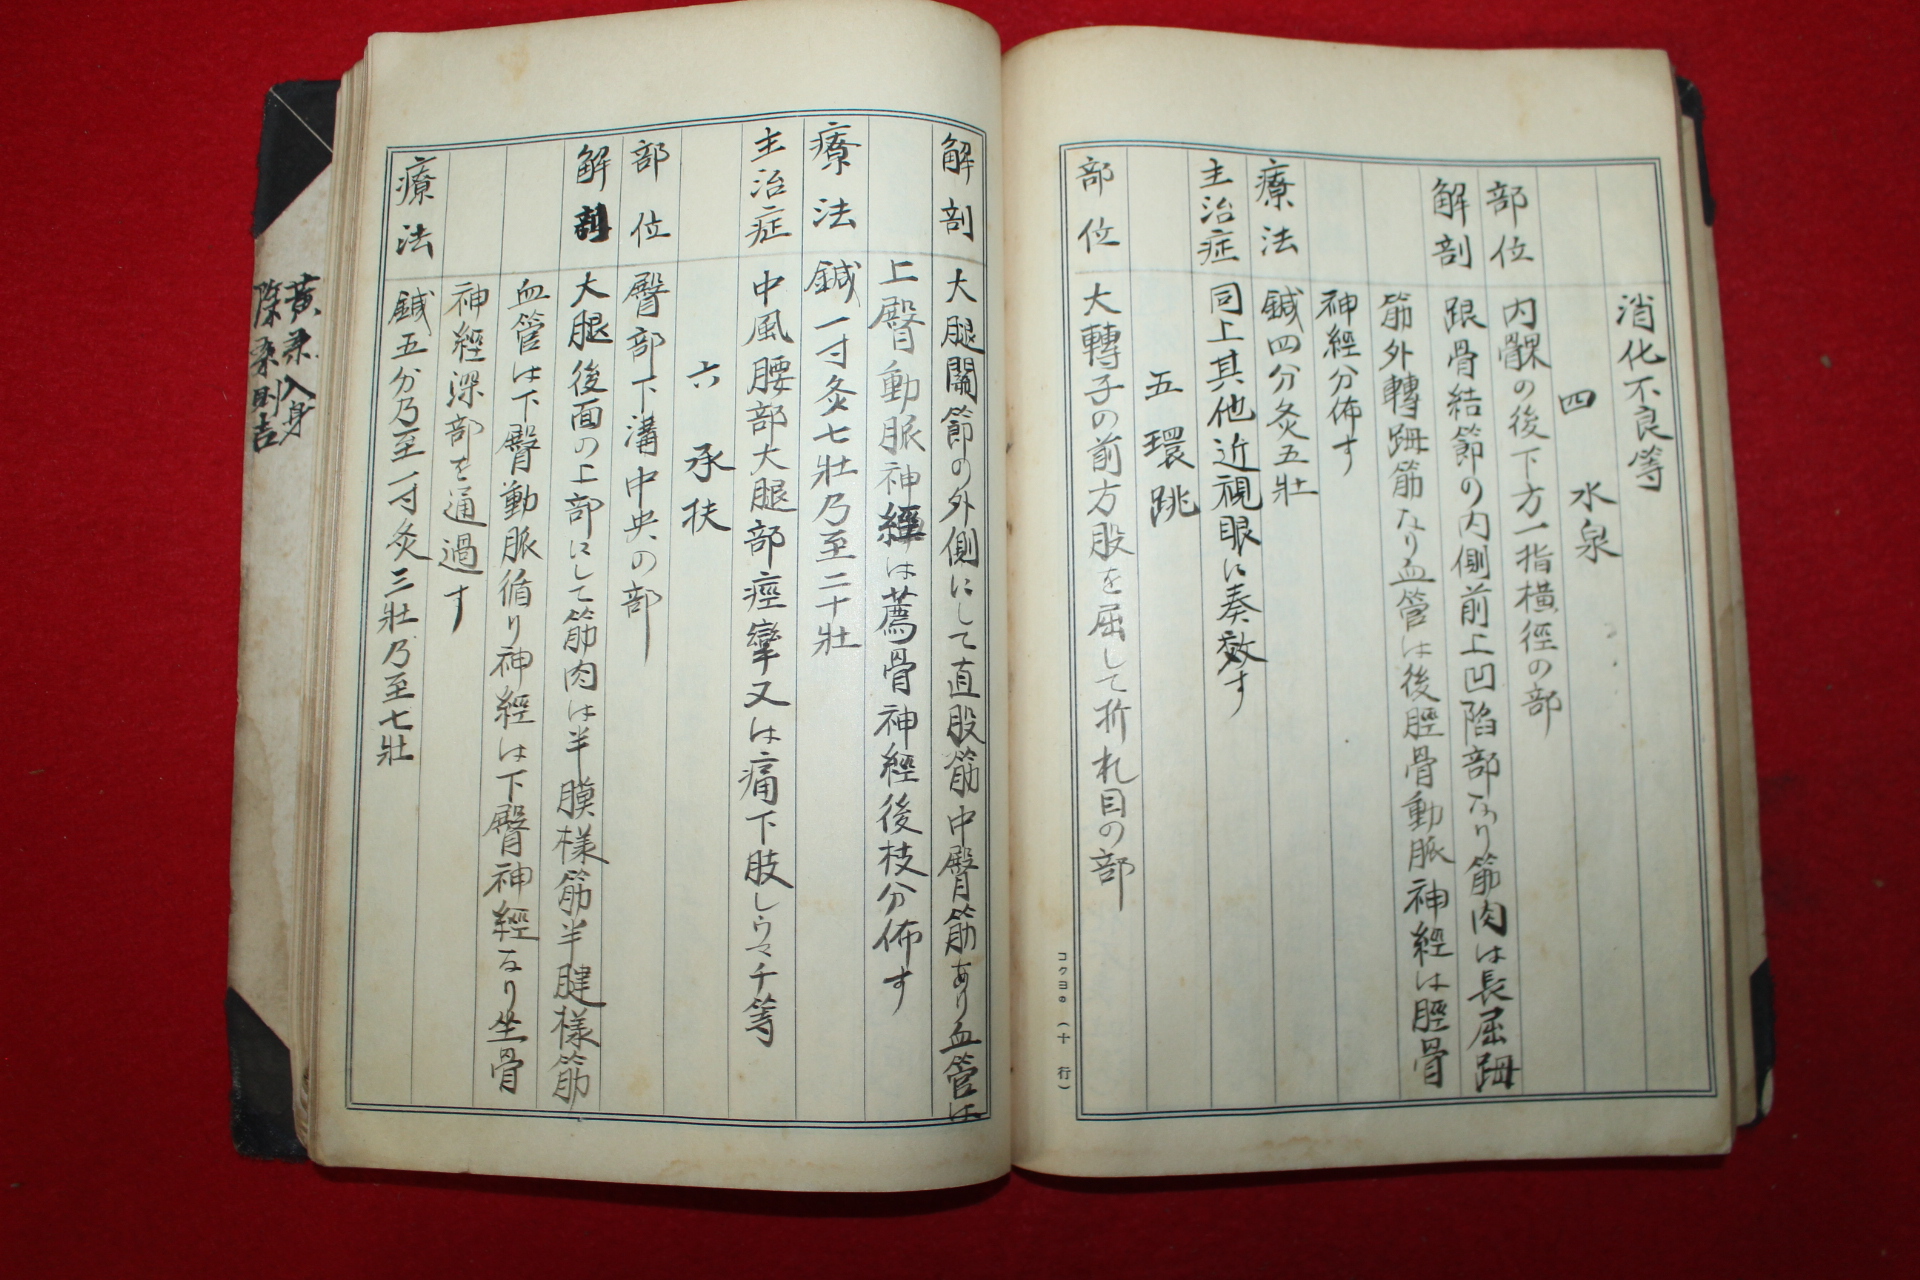 消化不良等
四 水泉
部位 内髁の後下方一指横徑の部
解剖 跟骨結節の内側前上凹陷部なり筋肉は長屈踇
筋外轉踇筋なり血管は後脛骨動脈神經は脛骨
神經分佈す
療法 鍼四分灸五壯
主治症 同上其他近視眼に奏效す
五 環跳
部位 大轉子の前方股を屈して折れ目の部
コクヨの(十行)
解剖 大腿關節の外側にして直股筋中臀筋あり血管は
上臀動脈神經は薦骨神經後枝分佈す
療法 鍼一寸灸七壯乃至二十壯
主治症 中風腰部大腿部痙攣又は痛下肢しウマチ等
六 承扶
部位 臀部下溝中央の部
解剖 大腿後面の上部にして筋肉は半膜樣筋半腱樣筋
血管は下臀動脈循り神經は下臀神經なり坐骨
神經深部を通過す
療法 鍼五分乃至一寸灸三壯乃至七壯